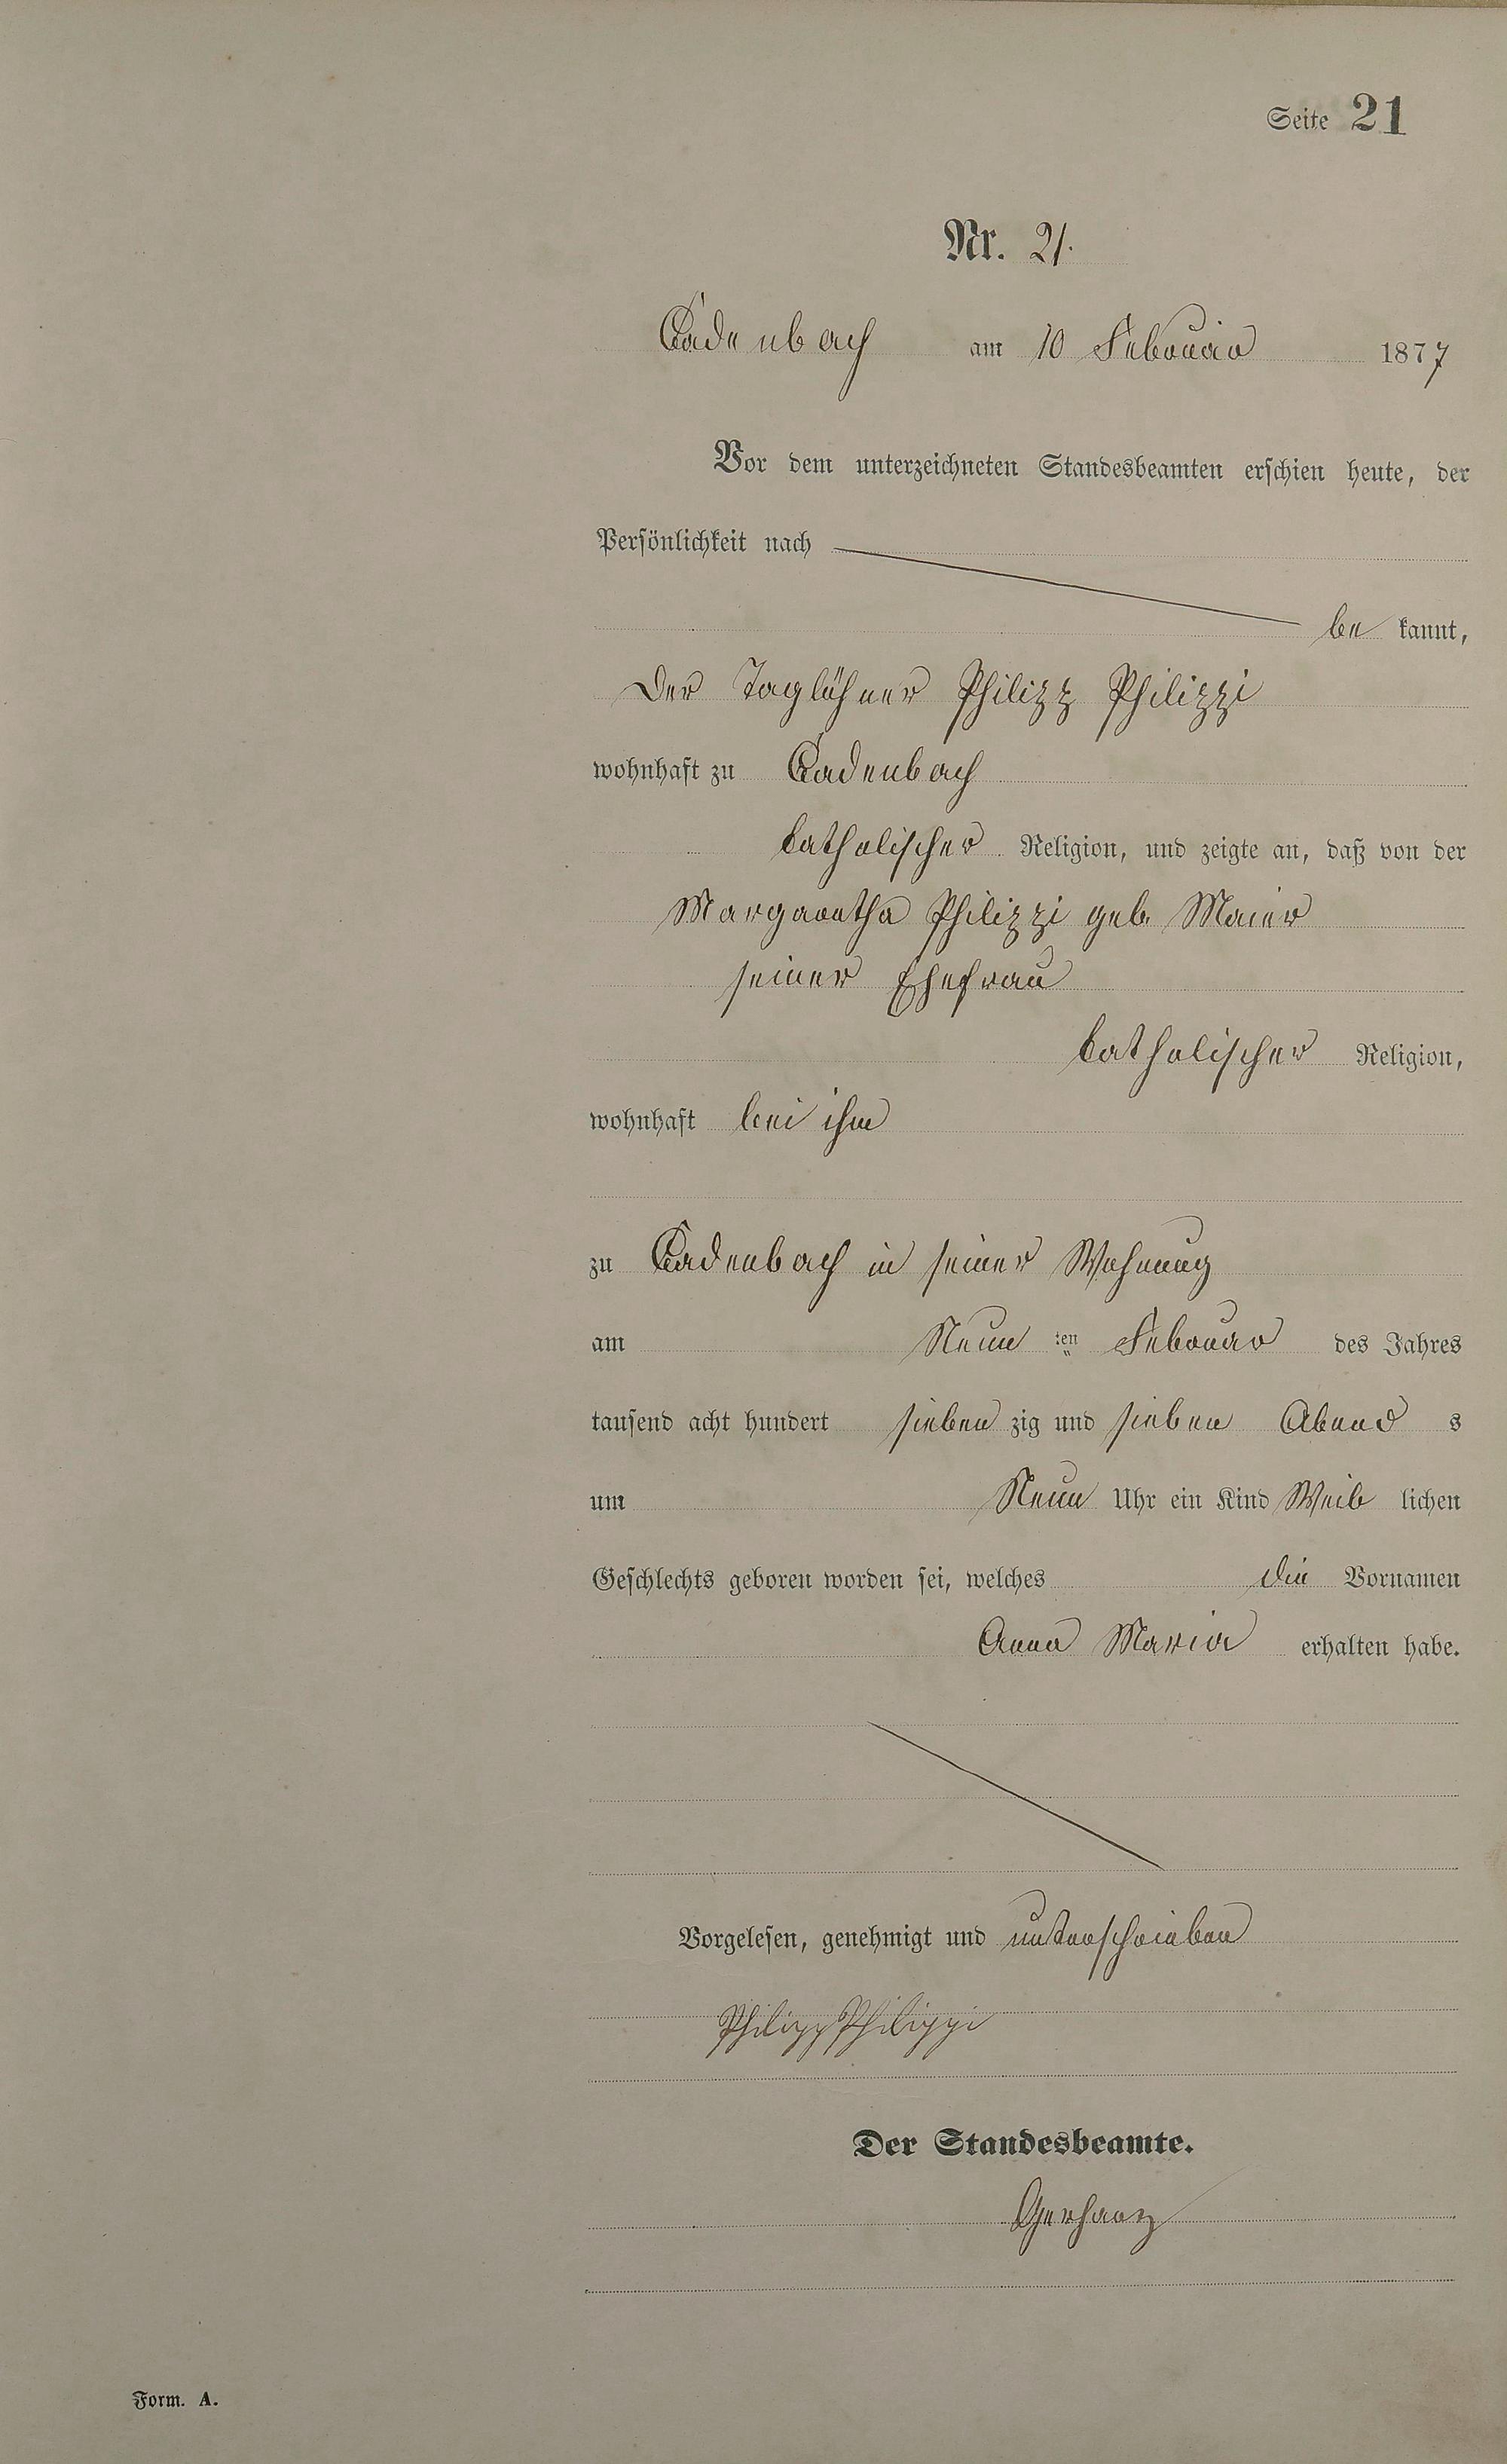 Seite 21
Nr. 21.
Cadenbach am 10 Februar 1877
Vor dem unterzeichneten Standesbeamten erschien heute, der
Persönlichkeit nach
be kannt,
Der Taglöhner Philipp Philippi
wohnhaft zu Cadenbach
katholischer Religion, und zeigte an, daß von der
Margaretha Philippi geb. Maier
seiner Ehefrau
katholischer Religion,
wohnhaft bei ihm
zu Cadenbach in seiner Wohnung
am Neun ten Februar des Jahres
tausend acht hundert sieben zig und sieben Abend s
um Neun Uhr ein Kind Weib lichen
Geschlechts geboren worden sei, welches die Vornamen
Anna Maria erhalten habe.
Vorgelesen, genehmigt und unterschrieben
Philipp Philippi
Der Standesbeamte.
Gerharz
Form. A.